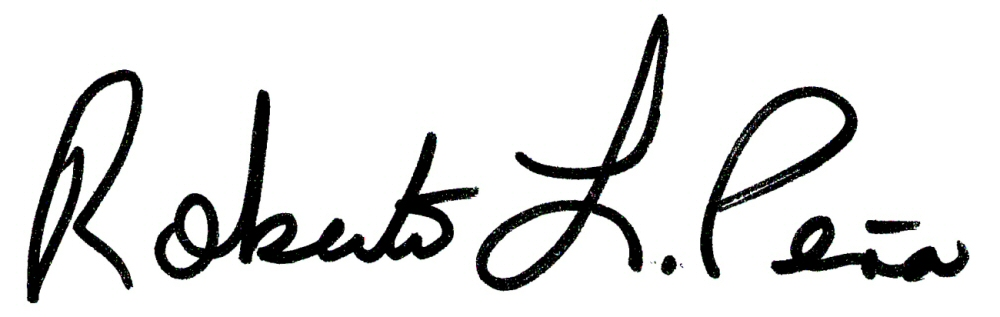 Roberto L. Peña